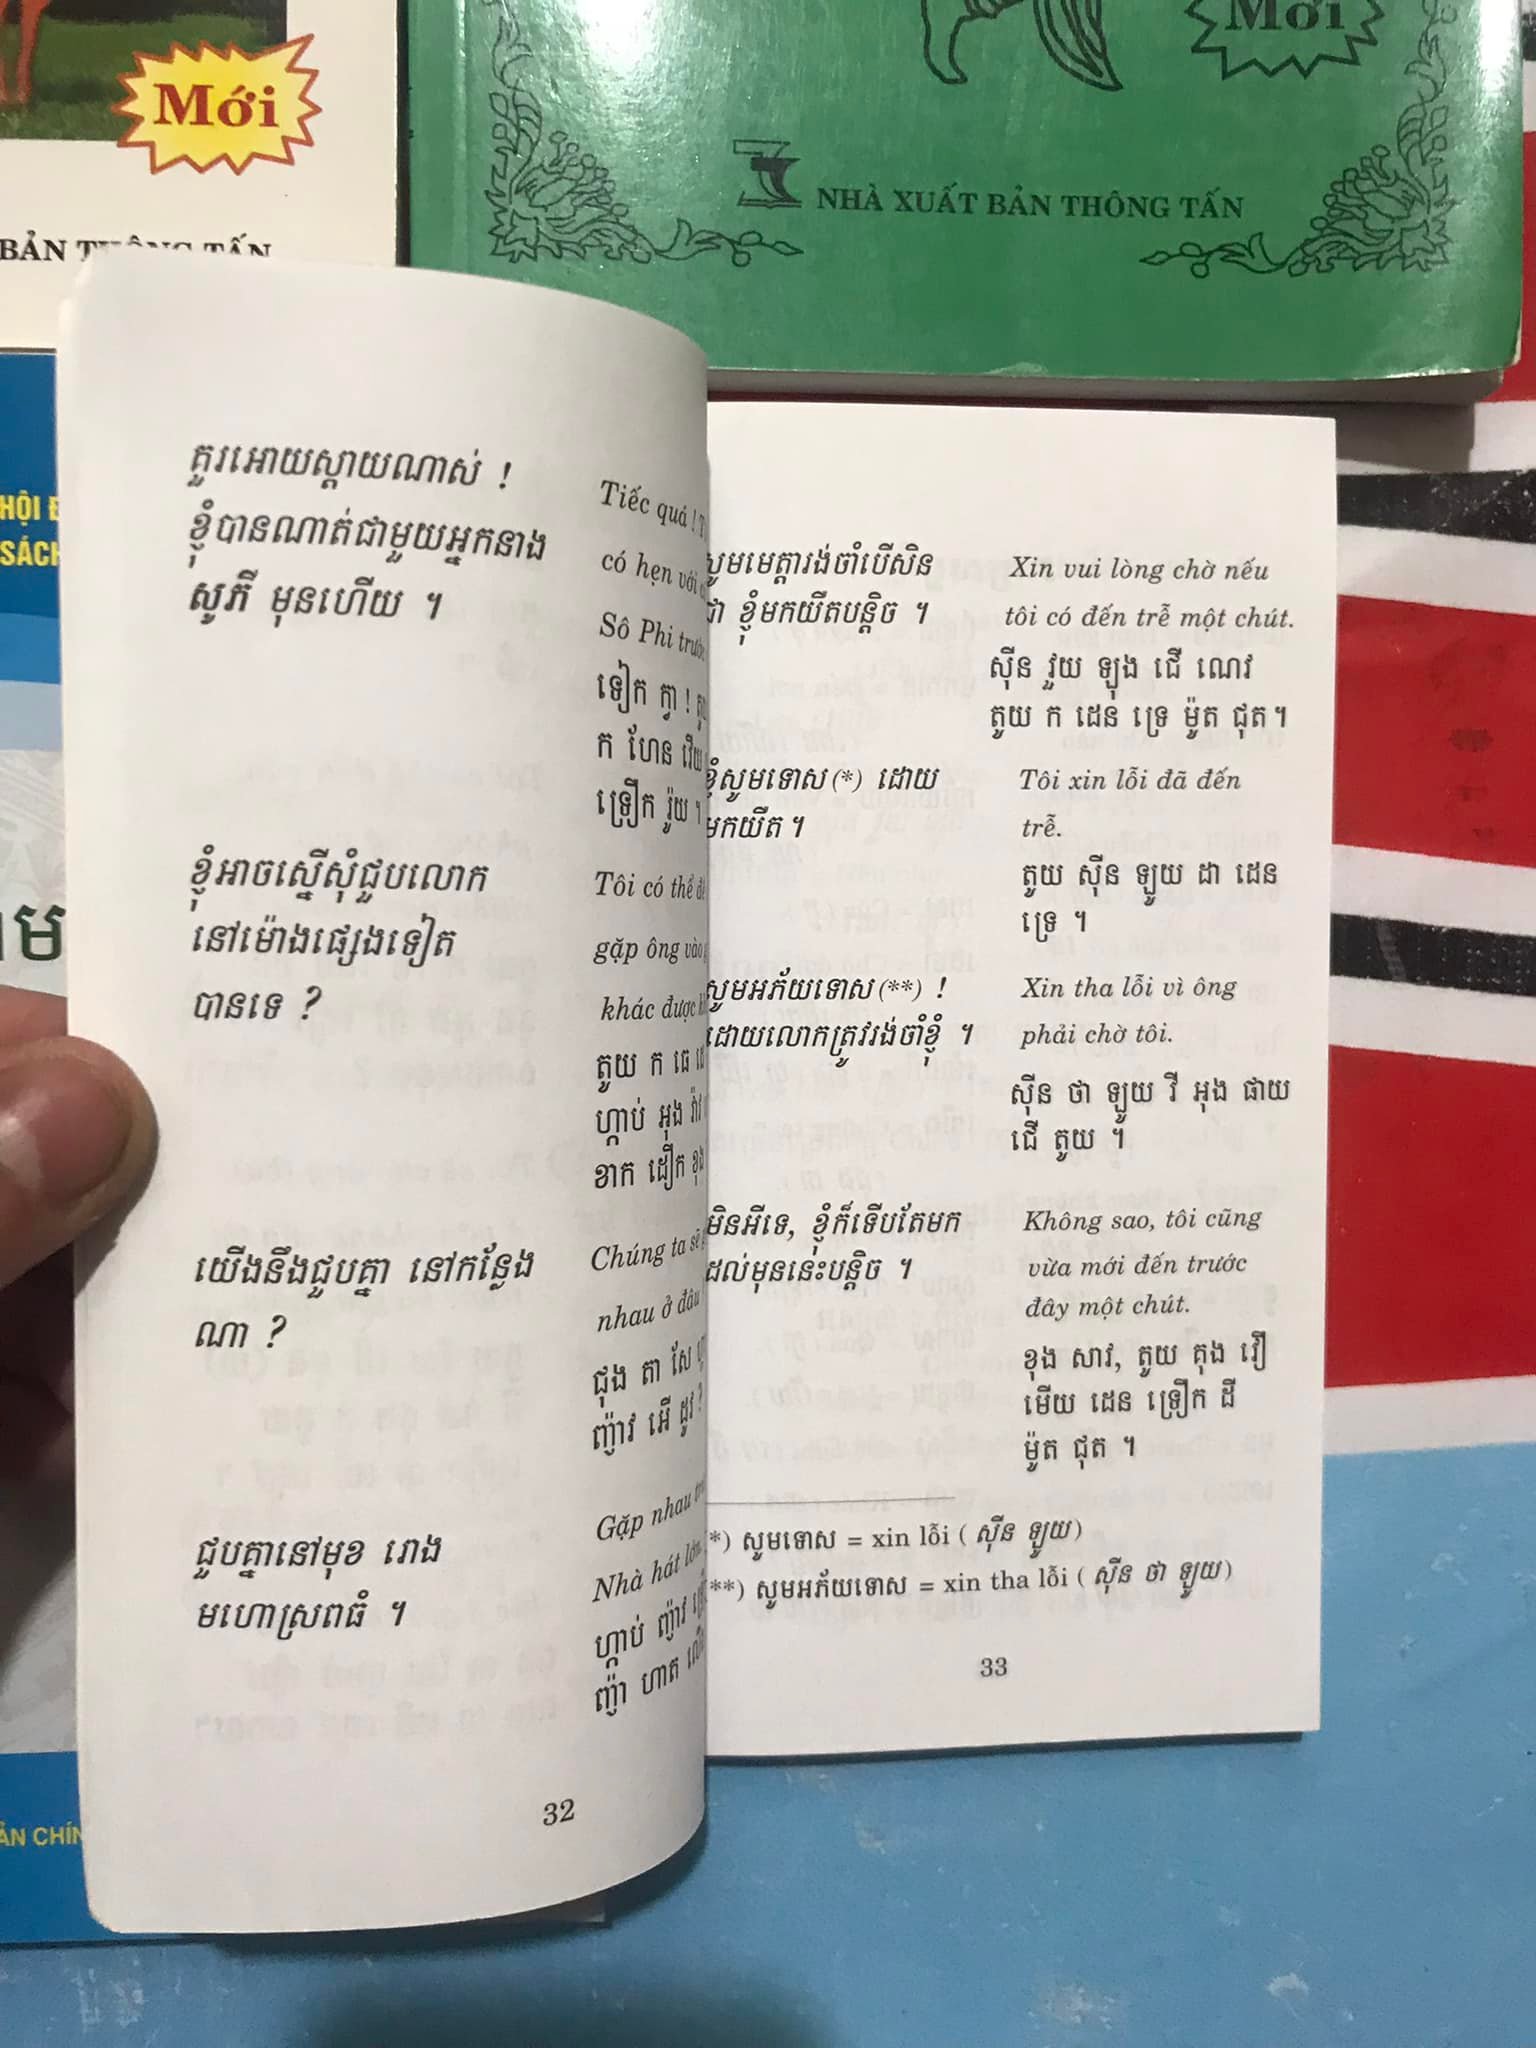 Mới
BẢN THÔNG TẤN
Mới
NHÀ XUẤT BẢN THÔNG TẤN
HỘI
SÁCH
គួរអោយស្ដាយណាស់ !
ខ្ញុំបានណាត់ជាមួយអ្នកនាង
សូភី មុនហើយ ។
Tiếc quá !
có hẹn với
Sô Phi trước
ទៀក ក្វា !
ក ហែន វើយ
ទ្រឿក រ៉ូយ ។
ខ្ញុំអាចស្នើសុំជួបលោក
នៅម៉ោងផ្សេងទៀត
បានទេ ?
Tôi có thể
gặp ông vào
khác được
តូយ ក ធេ
ហ្គាប់ អុង វ៉ាវ
ខាក ដឿក ខុង
យើងនឹងជួបគ្នា នៅកន្លែង
ណា ?
Chúng ta sẽ
nhau ở đâu
ជុង តា សែ
ញ៉ាវ អើ ដូវ ?
ជួបគ្នានៅមុខ រោង
មហោស្រពធំ ។
Gặp nhau
Nhà hát lớn
ហ្គាប់ ញ៉ាវ
ញ៉ា ហាត
32
សូមមេត្តារង់ចាំបើសិន
ជា ខ្ញុំមកយឺតបន្តិច ។
Xin vui lòng chờ nếu
tôi có đến trễ một chút.
ស៊ីន វួយ ឡុង ជើ ណេវ
តូយ ក ដេន ទ្រេ ម៉ូត ជុត ។
ខ្ញុំសូមទោស (*) ដោយ
មកយឺត ។
Tôi xin lỗi đã đến
trễ.
តូយ ស៊ីន ឡូយ ដា ដេន
ទ្រេ ។
សូមអភ័យទោស (**) !
ដោយលោកត្រូវរង់ចាំខ្ញុំ ។
Xin tha lỗi vì ông
phải chờ tôi.
ស៊ីន ថា ឡូយ វី អុង ផាយ
ជើ តូយ ។
មិនអីទេ, ខ្ញុំក៏ទើបតែមក
ដល់មុននេះបន្តិច ។
Không sao, tôi cũng
vừa mới đến trước
đây một chút.
ខុង សាវ, តូយ គុង វឿ
មើយ ដេន ទ្រឿក ដី
ម៉ូត ជុត ។
*) សូមទោស = xin lỗi ( ស៊ីន ឡូយ)
**) សូមអភ័យទោស = xin tha lỗi ( ស៊ីន ថា ឡូយ)
33